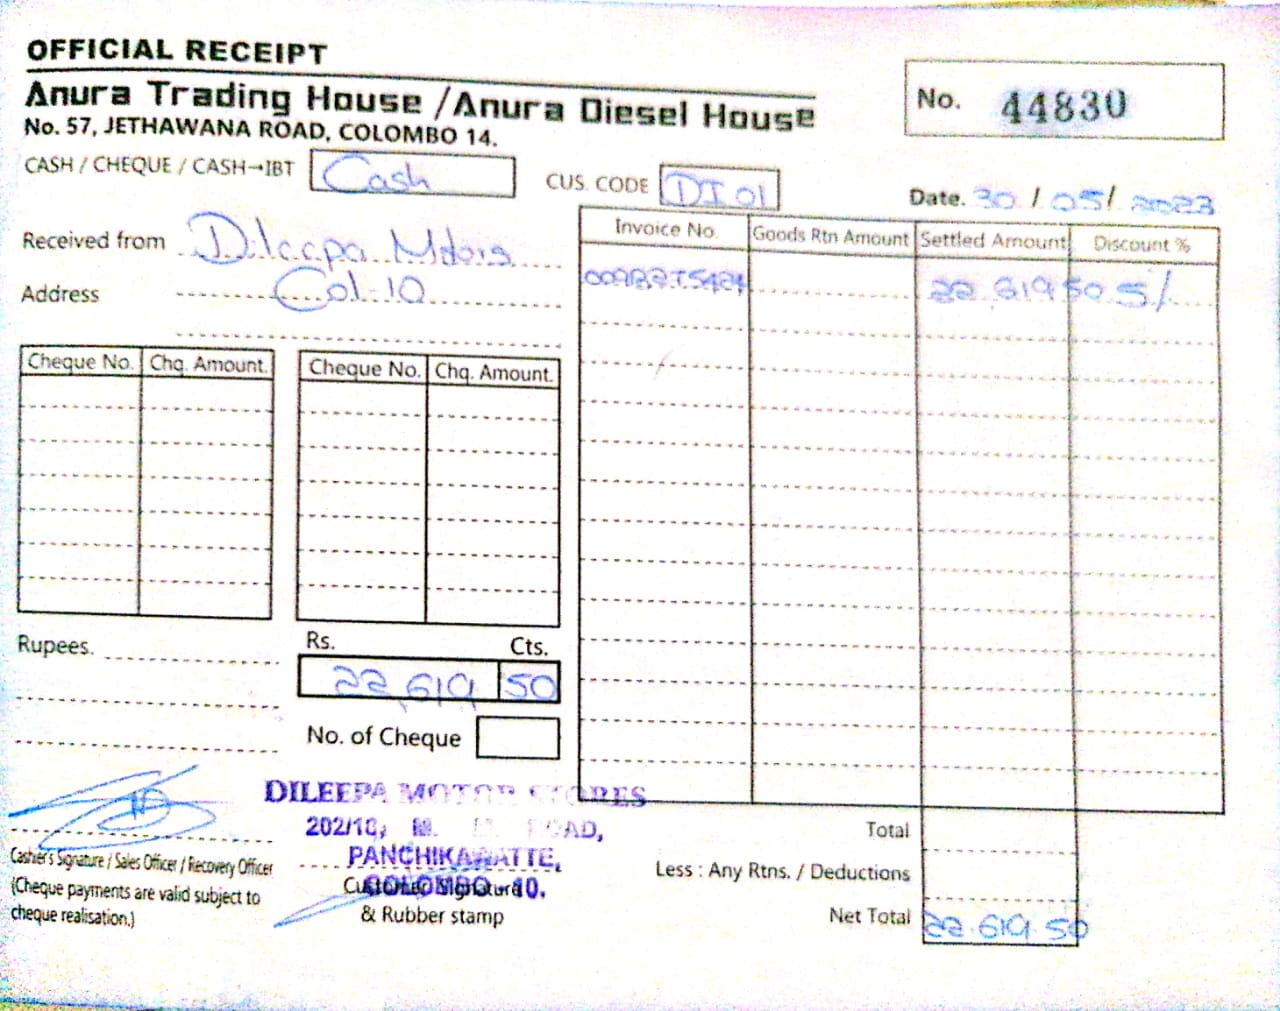 OFFICIAL RECEIPT
Anura Trading House / Anura Diesel House
No. 57, JETHAWANA ROAD, COLOMBO 14.
No. 44830
CASH / CHEQUE / CASH→IBT Cash
CUS. CODE DI 01
Date. 30 / 05 / 2023
Received from Dileepa Motors
Address Col-10
Invoice No. Goods Rtn Amount Settled Amount Discount %
22 619 50 5%
Cheque No. Chq. Amount. Cheque No. Chq. Amount.
Rupees.
Rs. Cts.
22 619 50
No. of Cheque
DILEEPA MOTOR STORES
ROAD,
PANCHIKAWATTE,
COLOMBO - 10.
Cashier's Signature / Sales Officer / Recovery Officer
(Cheque payments are valid subject to
cheque realisation.)
Customer Signature
& Rubber stamp
Total
Less : Any Rtns. / Deductions
Net Total 22 619 50